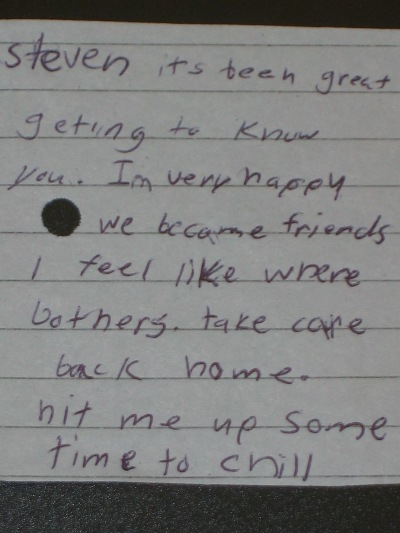 steven its been great
geting to know
you. Im very happy
we became friends
I feel like where
bothers. take care
back home.
hit me up some
time to chill